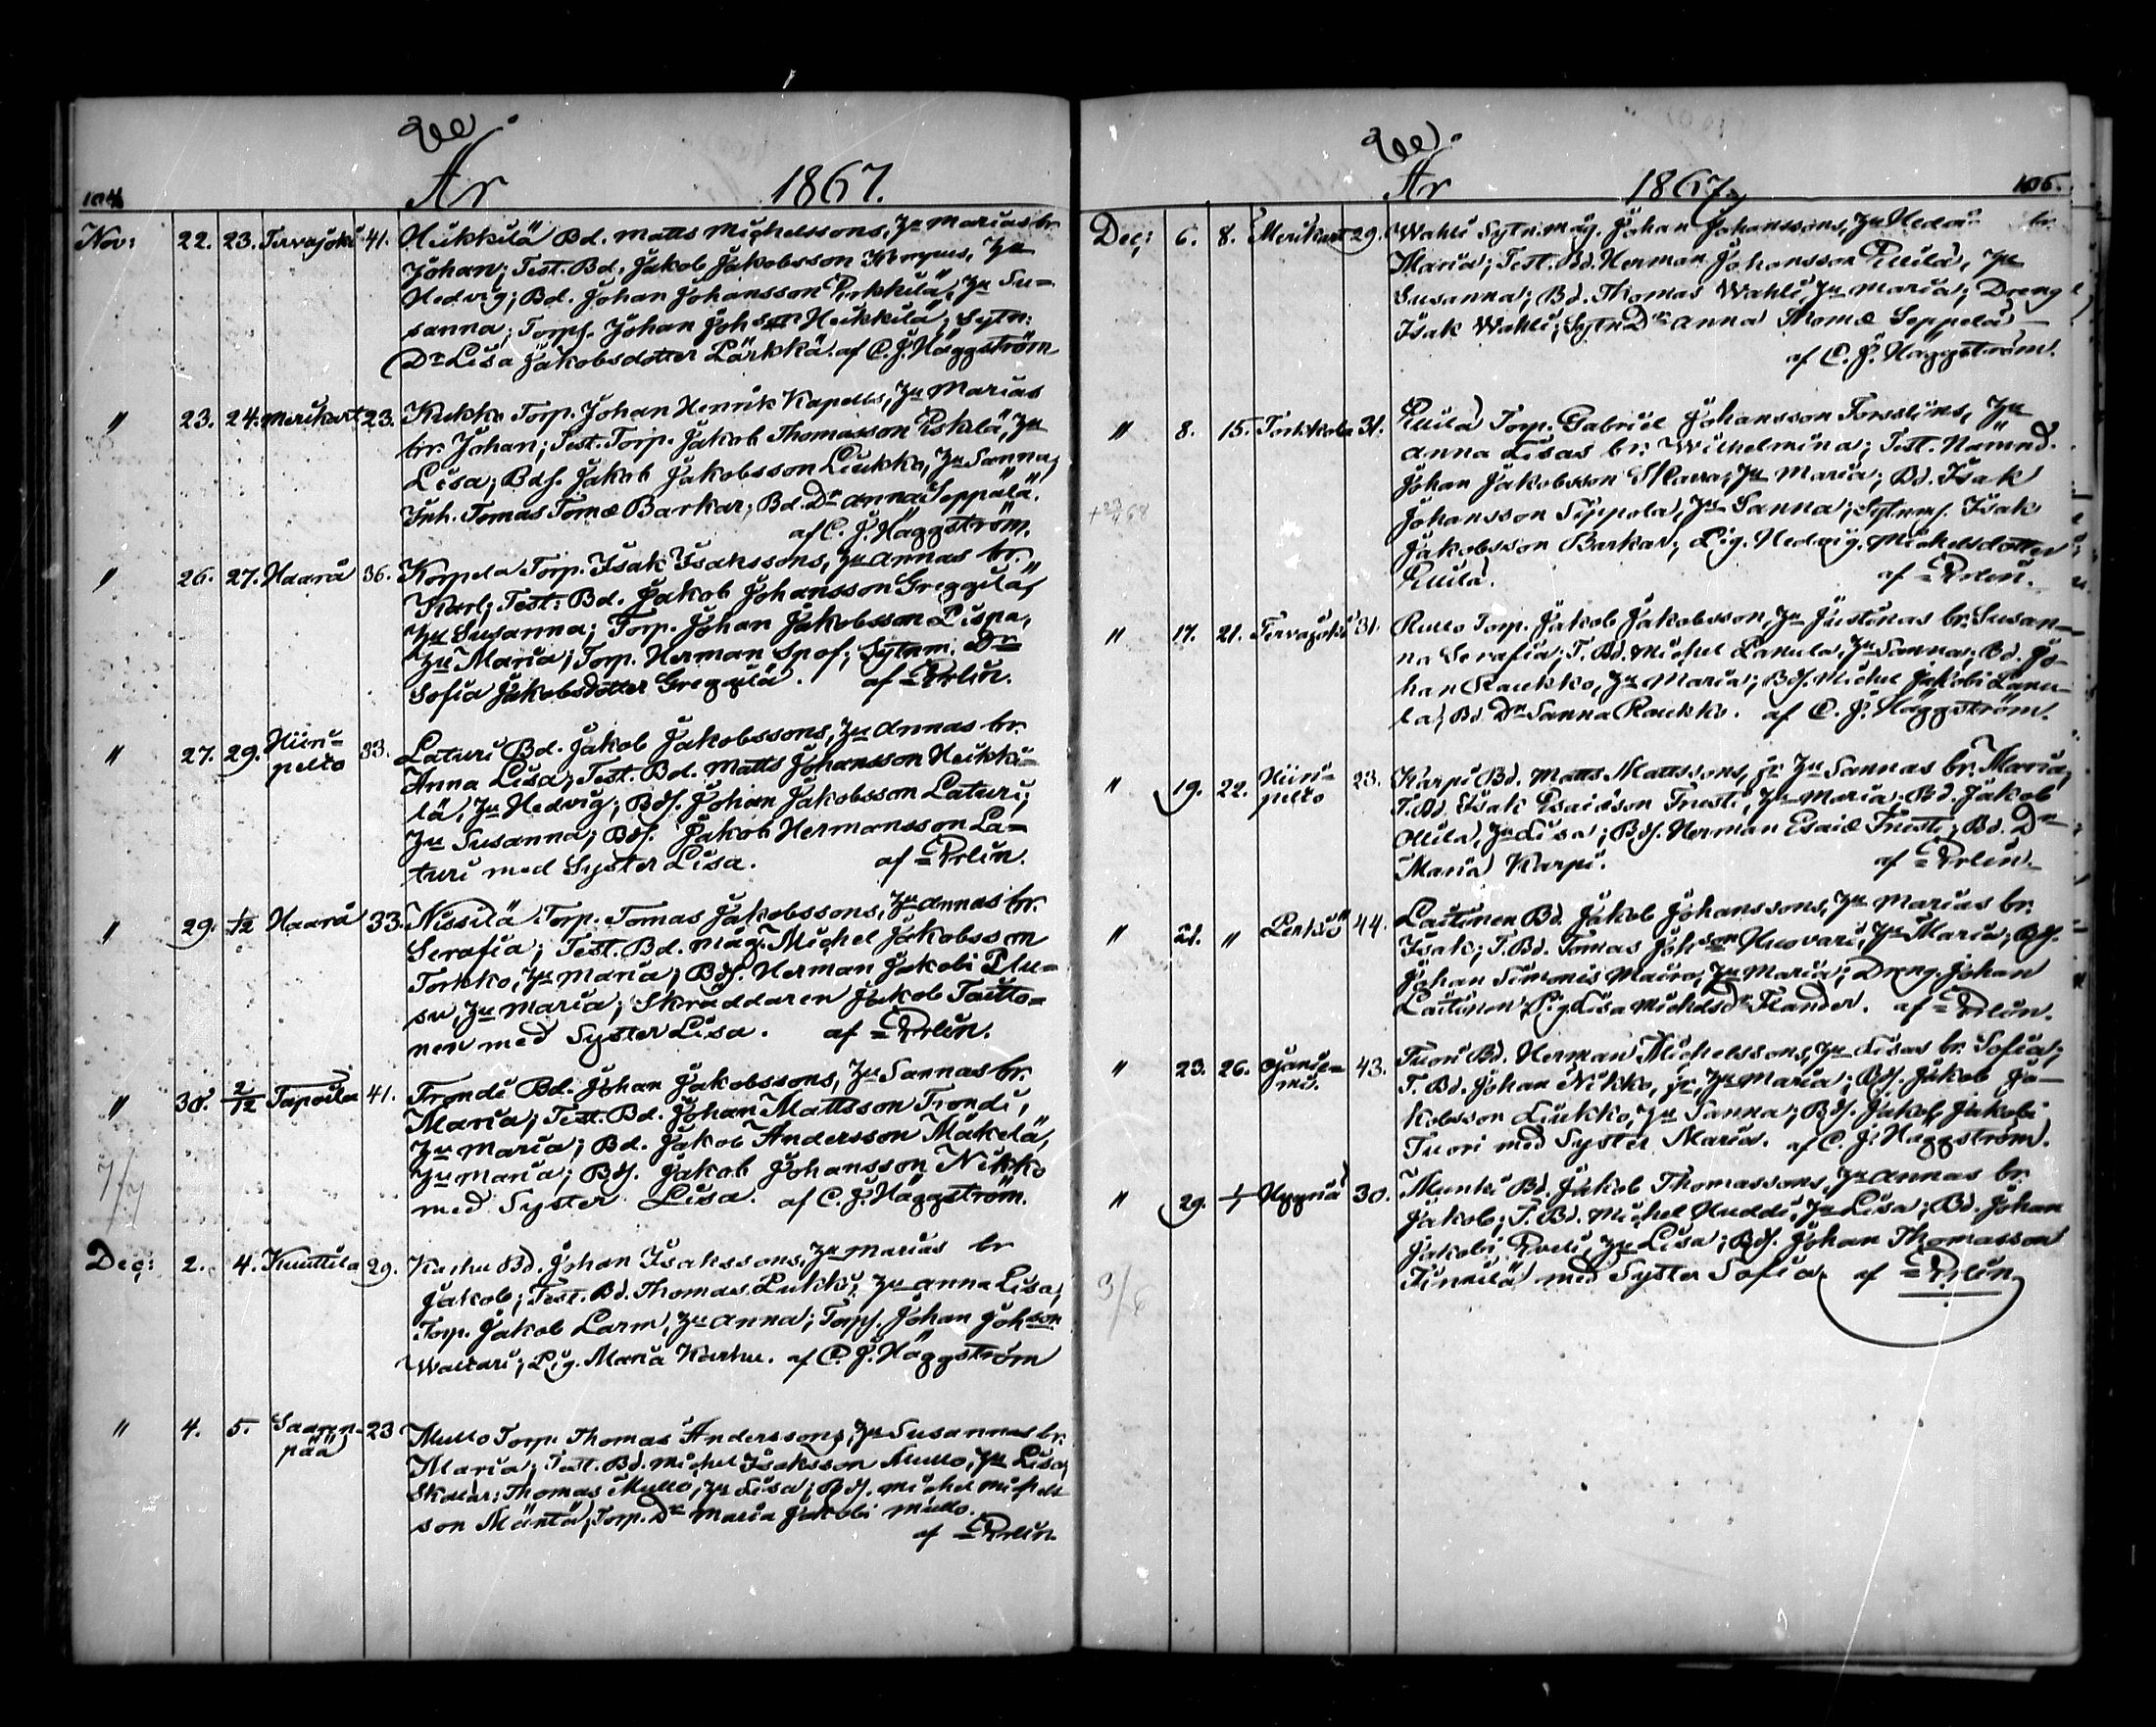 År 1867.
104
Nov: 22. 23. Tervajoki 41. Heikkilä Bd. Matts Michelssons, Hu Marias br.
Johan; Test. Bd. Jakob Jakobsson Korpus, Hu
Hedvig; Bd. Johan Johansson Pirkkilä, Hu Su-
sanna; Torps. Johan Johsson Heikkilä; Sytn:
Dr Lisa Jakobsdotter Lärkkä. af C. J. Häggström
" 23. 24. Merikart 23. Kukko Torp. Johan Henrik Kapells, Hu Marias
br. Johan; Test. Torp. Jakob Thomasson Eskilä, Hu
Lisa; Bds. Jakob Jakobsson Liukko, Hu Sanna;
Inh. Tomas Tomæ Barkar; Bd. Dr Anna Seppälä.
af C. J. Häggström.
" 26. 27. Haarå 36. Korpela Torp. Isak Isakssons, Hu Annas br.
Karl; Test: Bd. Jakob Johansson Greggilä,
Hu Susanna; Torp. Johan Jakobsson Lispa,
Hu Maria; Torp. Herman Spof; Sytnm. Dr
Sofia Jakobsdotter Greggilä. af Rolin.
" 27. 29. Hiiri-
pelto 33. Laturi Bd. Jakob Jakobssons, Hu Annas br.
Anna Lisa; Test. Bd. Matts Johansson Heikki-
lä, Hu Hedvig; Bds. Johan Jakobsson Laturi,
Hu Susanna; Bds. Jakob Hermansson La-
turi med Syster Lisa. af Rolin.
" 29. 1/12 Haarå 33. Nissilä Torp. Tomas Jakobssons, Hu Annas br.
Serafia; Test. Bd. måg. Michel Jakobsson
Torkko, Hu Maria; Bds. Herman Jakobi Plu-
su, Hu Maria; Skräddaren Jakob Taitto-
nen med Syster Lisa. af Rolin.
" 30. 2/12 Tapoila 41. Trondi Bd. Johan Jakobssons, Hu Sannas br.
Maria; Test. Bd. Johan Mattsson Trondi,
Hu Maria; Bd. Jakob Andersson Mäkelä,
Hu Maria; Bds. Jakob Johansson Nikko
med Syster Lisa. af C. J. Häggström.
7/7
Dec: 2. 4. Kuuttila 29. Karhu Bd. Johan Isakssons, Hu Marias br
Jakob; Test. Bd. Thomas Pukki, Hu Anna Lisa;
Torp. Jakob Larm, Hu Anna; Torps. Johan Johsson
Waltari; Pig. Maria Karhu. af C. J. Häggström
" 4. 5. Saaren-
pää 23 Mullo Torp. Thomas Anderssons, Hu Susannas br.
Maria; Test. Bd. Michel Isaksson Mullo, Hu Lisa;
Thomas Mullo, Hu Lisa; Bds. Michel Michels
son Mäntä; Torp. Dr Maria Jakobi Mullo.
af Rolin.
År 1867.
105.
Dec: 6. 8. Merikart 29. Wahli Sytn. måg. Johan Johanssons, Hu Hedv: br.
Maria; Test. Bd. Herman Johansson Pillilä, Hu
Susanna; Bd. Thomas Wahli, Hu Maria; Dreng
Isak Wahli; Sytn Dr Anna Thomæ Seppelä
af C. J. Häggström.
" 8. 15. Torkkola 31. Pillilä Torp. Gabriel Johansson Forsslins, Hu
Anna Lisas br: Wilhelmina; Test. Nämnd.
Johan Jakobsson Skara, Hu Maria; Bd. Isak
Johansson Seppola, Hu Sanna; Sytnms. Isak
Jakobsson Barkar; Pig. Hedvig Michelsdotter
Pillilä. af Rolin.
" 17. 21. Tervajoki 31. Rullo Torp. Jakob Jakobsson, Hu Justinas br. Susan-
na Serafia; T. Bd. Michel Lanula, Hu Sanna; Bd. Jo-
han Raukko, Hu Maria; Bds. Michel Jakobi Lanu-
la; Bd. Dr Sanna Raukko. af C. J. Häggström.
" 19. 22. Hiiri-
pelto 23. Karpi Bd. Matts Mattssons, jr Hu Sannas br. Maria;
T. Bd. Isak Esaiasson Frusti, Hu Maria; Bd. Jakob
Ollila, Hu Lisa; Bds. Herman Esaiæ Frusti; Bd. Dr
Maria Karpi. af Rolin.
" 21. " Lentiö 44. Laitinen Bd. Jakob Johanssons, Hu Marias br.
Isak; T. Bd. Tomas Johsson Huovari, Hu Maria; Bds.
Johan Simonis Maira, Hu Maria; Dreng Johan
Laitinen; Pig. Lisa Michelsdr Flander. af Rolin.
" 23. 26. 43. Tuori Bd. Herman Michelssons, Hu Lisas br. Sofia;
T. Bd. Johan Nikko, jr, Hu Maria; Bds. Jakob Ja-
kobsson Liukko, Hu Sanna; Bds. Jakob Jakobi
Tuori med Syster Maria. af C. J. Häggström.
" 29. 1/1 Hyyriä 30. Munki Bd. Jakob Thomassons, Hu Annas br.
Jakob; T. Bd. Michel Huddi, Hu Lisa; Bd. Johan
Jakobi Rveli, Hu Lisa; Bds. Johan Thomasson
Finnilä med Syster Sofia af Rolin
3/6